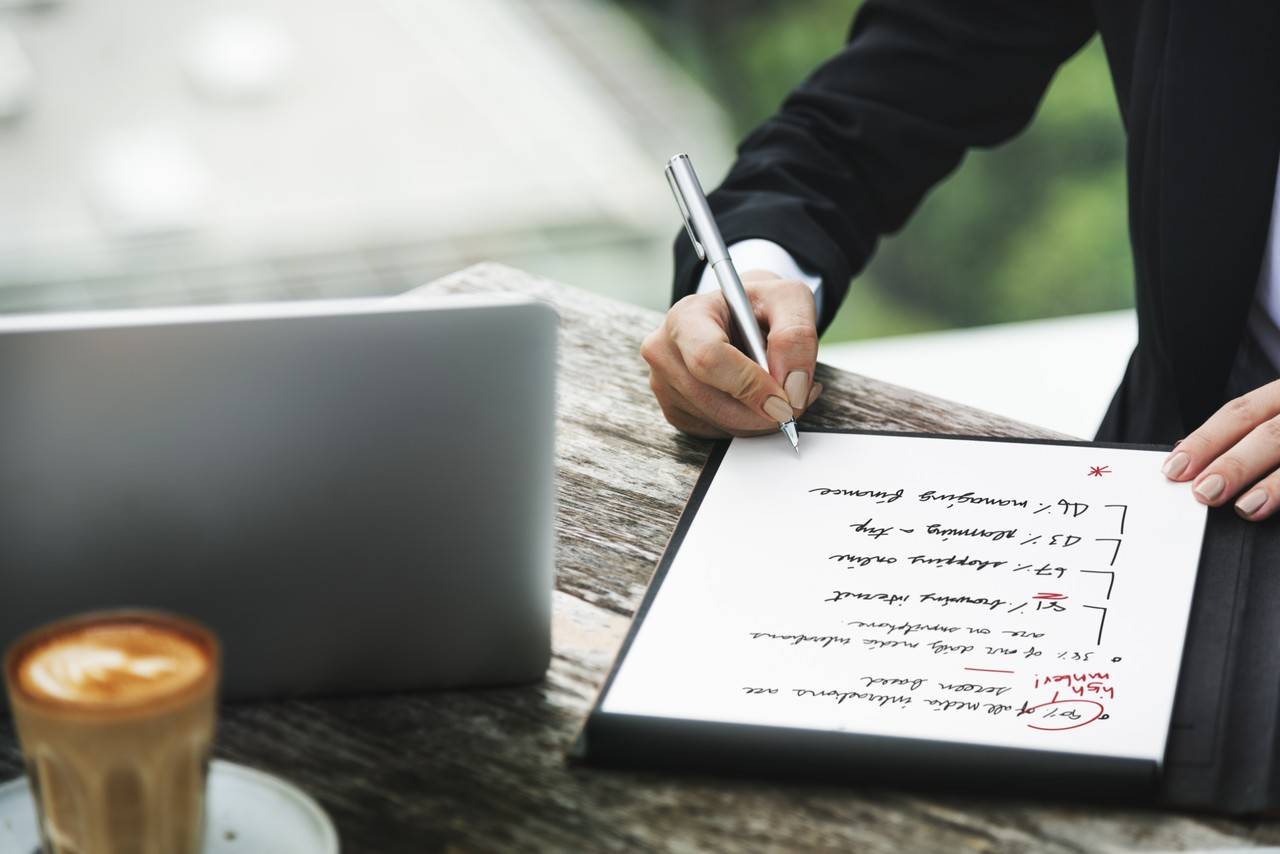 • 90% of all media interactions are
high number! screen based
• 38% of our daily media interactions
are on smartphone.
81% browsing internet
67% shopping online
43% planning a trip
46% managing finance
*